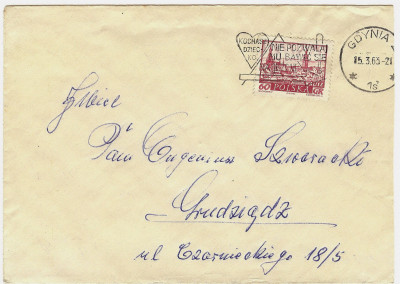 KOCHASZ
DZIEC-
KO
NIE POZWALAJ
MU BAWIĆ SIĘ
60 POLSKA GR
GDYNIA
15.3.63-21
Pan Eugeniusz Szwaracki
Grudziądz
ul Czarnieckiego 18/5